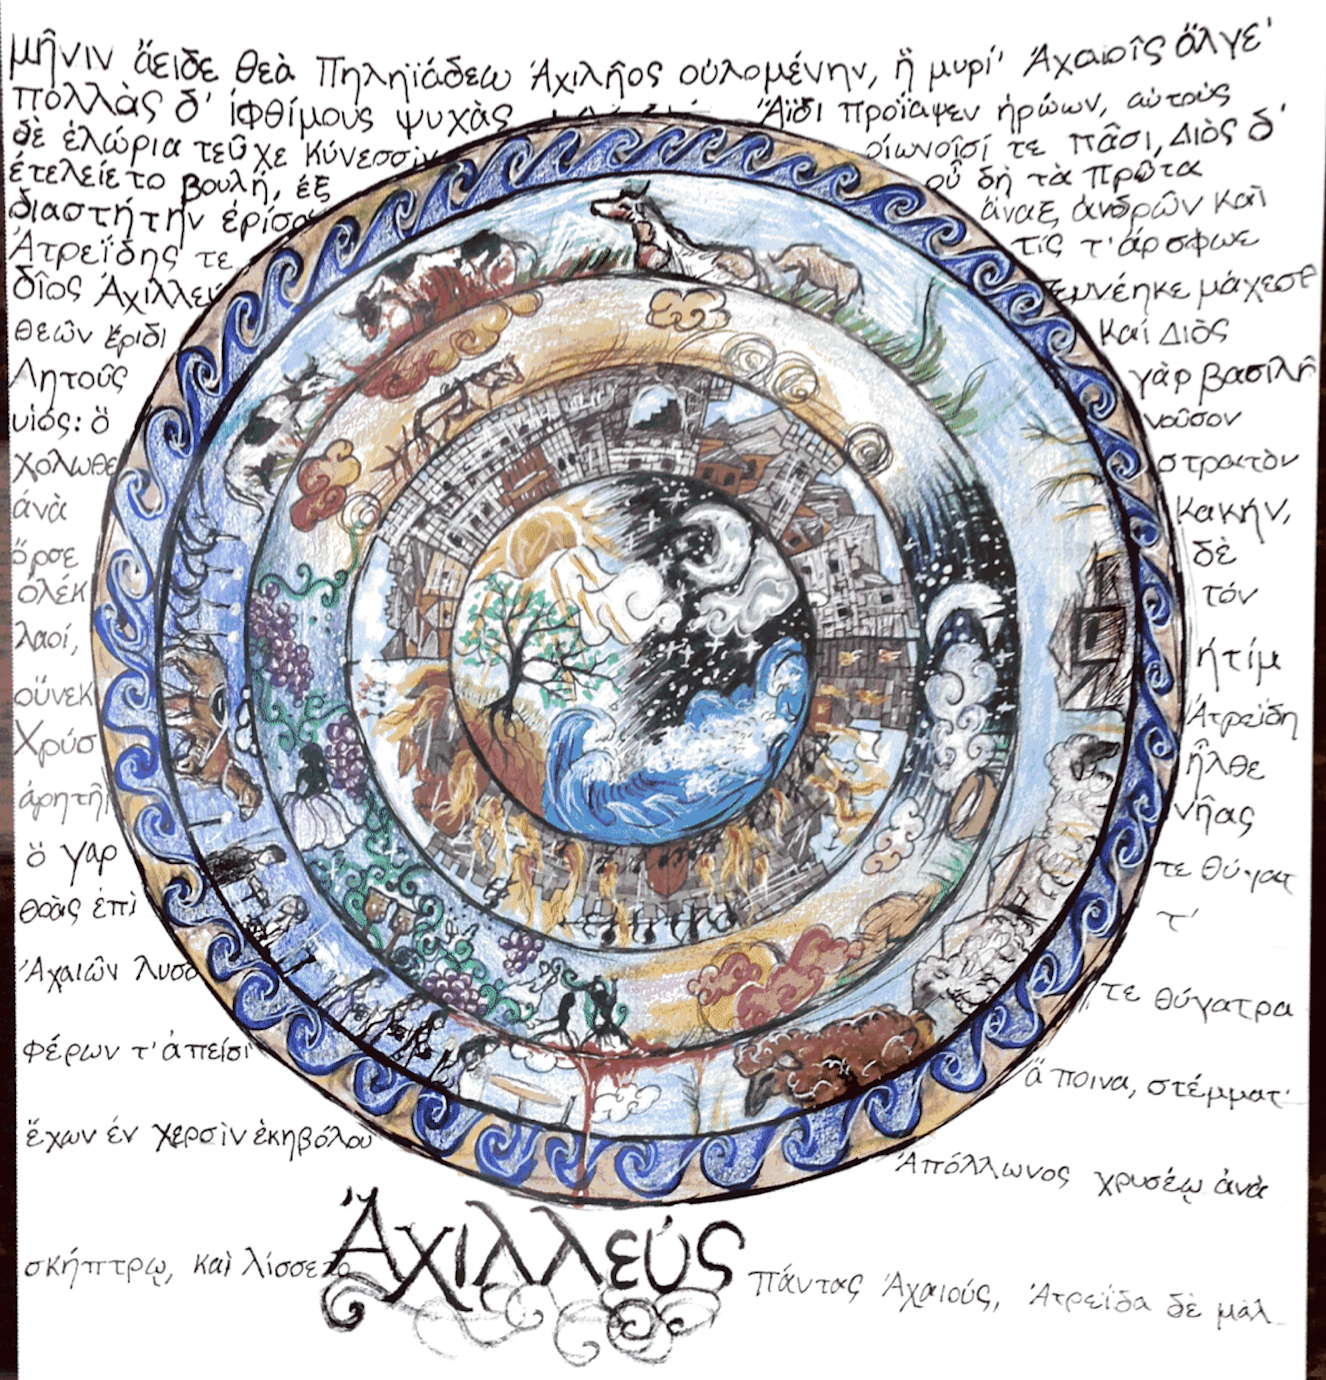 μῆνιν ἄειδε θεὰ Πηληϊάδεω Ἀχιλῆος οὐλομένην, ἣ μυρί' Ἀχαιοῖς ἄλγε'
πολλὰς δ' ἰφθίμους ψυχὰς Ἄϊδι προΐαψεν ἡρώων, αὐτοὺς
δὲ ἑλώρια τεῦχε κύνεσσιν οἰωνοῖσί τε πᾶσι, Διὸς δ'
ἐτελείετο βουλή, ἐξ οὗ δὴ τὰ πρῶτα
διαστήτην ἐρίσα ἄναξ ἀνδρῶν καὶ
Ἀτρεΐδης τε τίς τ' ἄρ σφωε
δῖος Ἀχιλλεύ μάχεσθ
θεῶν ἔριδι καί Διὸς
Λητοῦς γὰρ βασιλῆ
υἱός: ὃ νοῦσον
χολωθε στρατὸν
ἀνὰ κακήν,
ὄρσε δὲ
ὀλέκ τόν
λαοί, ἠτίμ
οὕνεκ Ἀτρεΐδη
Χρύσ ἦλθε
ἀρητῆ νῆας
ὃ γαρ τε θύγατ
θοὰς ἐπὶ τ'
Ἀχαιῶν λυσό τε θύγατρα
φέρων τ' ἀπείσι ἄποινα, στέμματ'
ἔχων ἐν χερσὶν ἑκηβόλου Ἀπόλλωνος χρυσέῳ ἀνὰ
σκήπτρῳ, καὶ λίσσετο Ἀχιλλεύς πάντας Ἀχαιούς, Ἀτρεΐδα δὲ μάλ